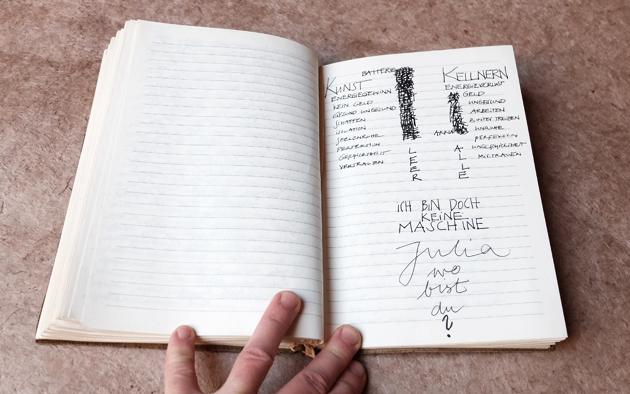 BATTERIE
KUNST
ENERGIEGEWINN
KEIN GELD
GESUND UNGESUND
SCHAFFEN
ISOLATION
SEELENRUHE
PERFEKTION
GEPFLOGENHEIT
VERTRAUEN
L
E
E
R
KELLNERN
ENERGIEVERLUST
GELD
UNGESUND
ARBEITEN
UNRUHE
PERFEKTION
MISTRAUEN
A
L
L
E
ICH BIN DOCH
KEINE
MASCHINE
Julia
wo
bist
du
?